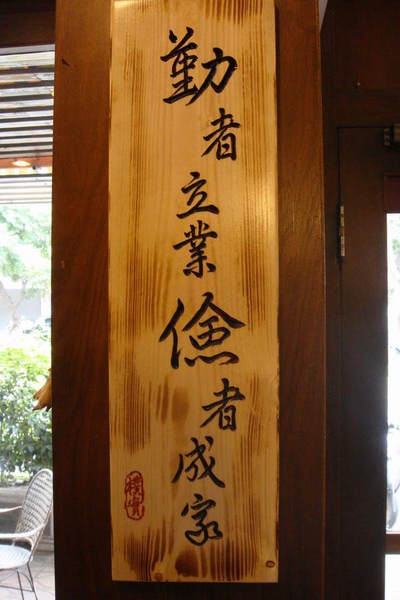 勤者立業儉者成家